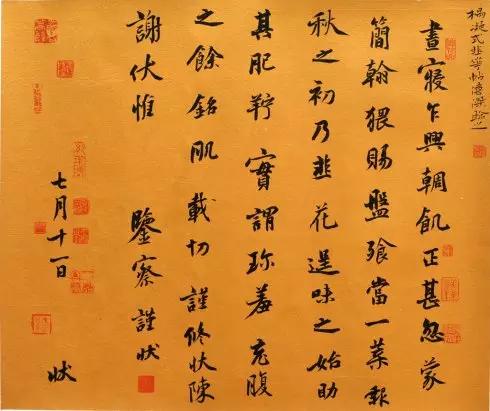 楊凝式韭花帖
晝寢乍興輖飢正甚忽蒙
簡翰猥賜盤飧當一葉報
秋之初乃韭花逞味之始助
其肥羜實謂珍羞充腹
之餘銘肌載切謹修狀陳
謝伏惟 鑒察謹狀
七月十一日 狀